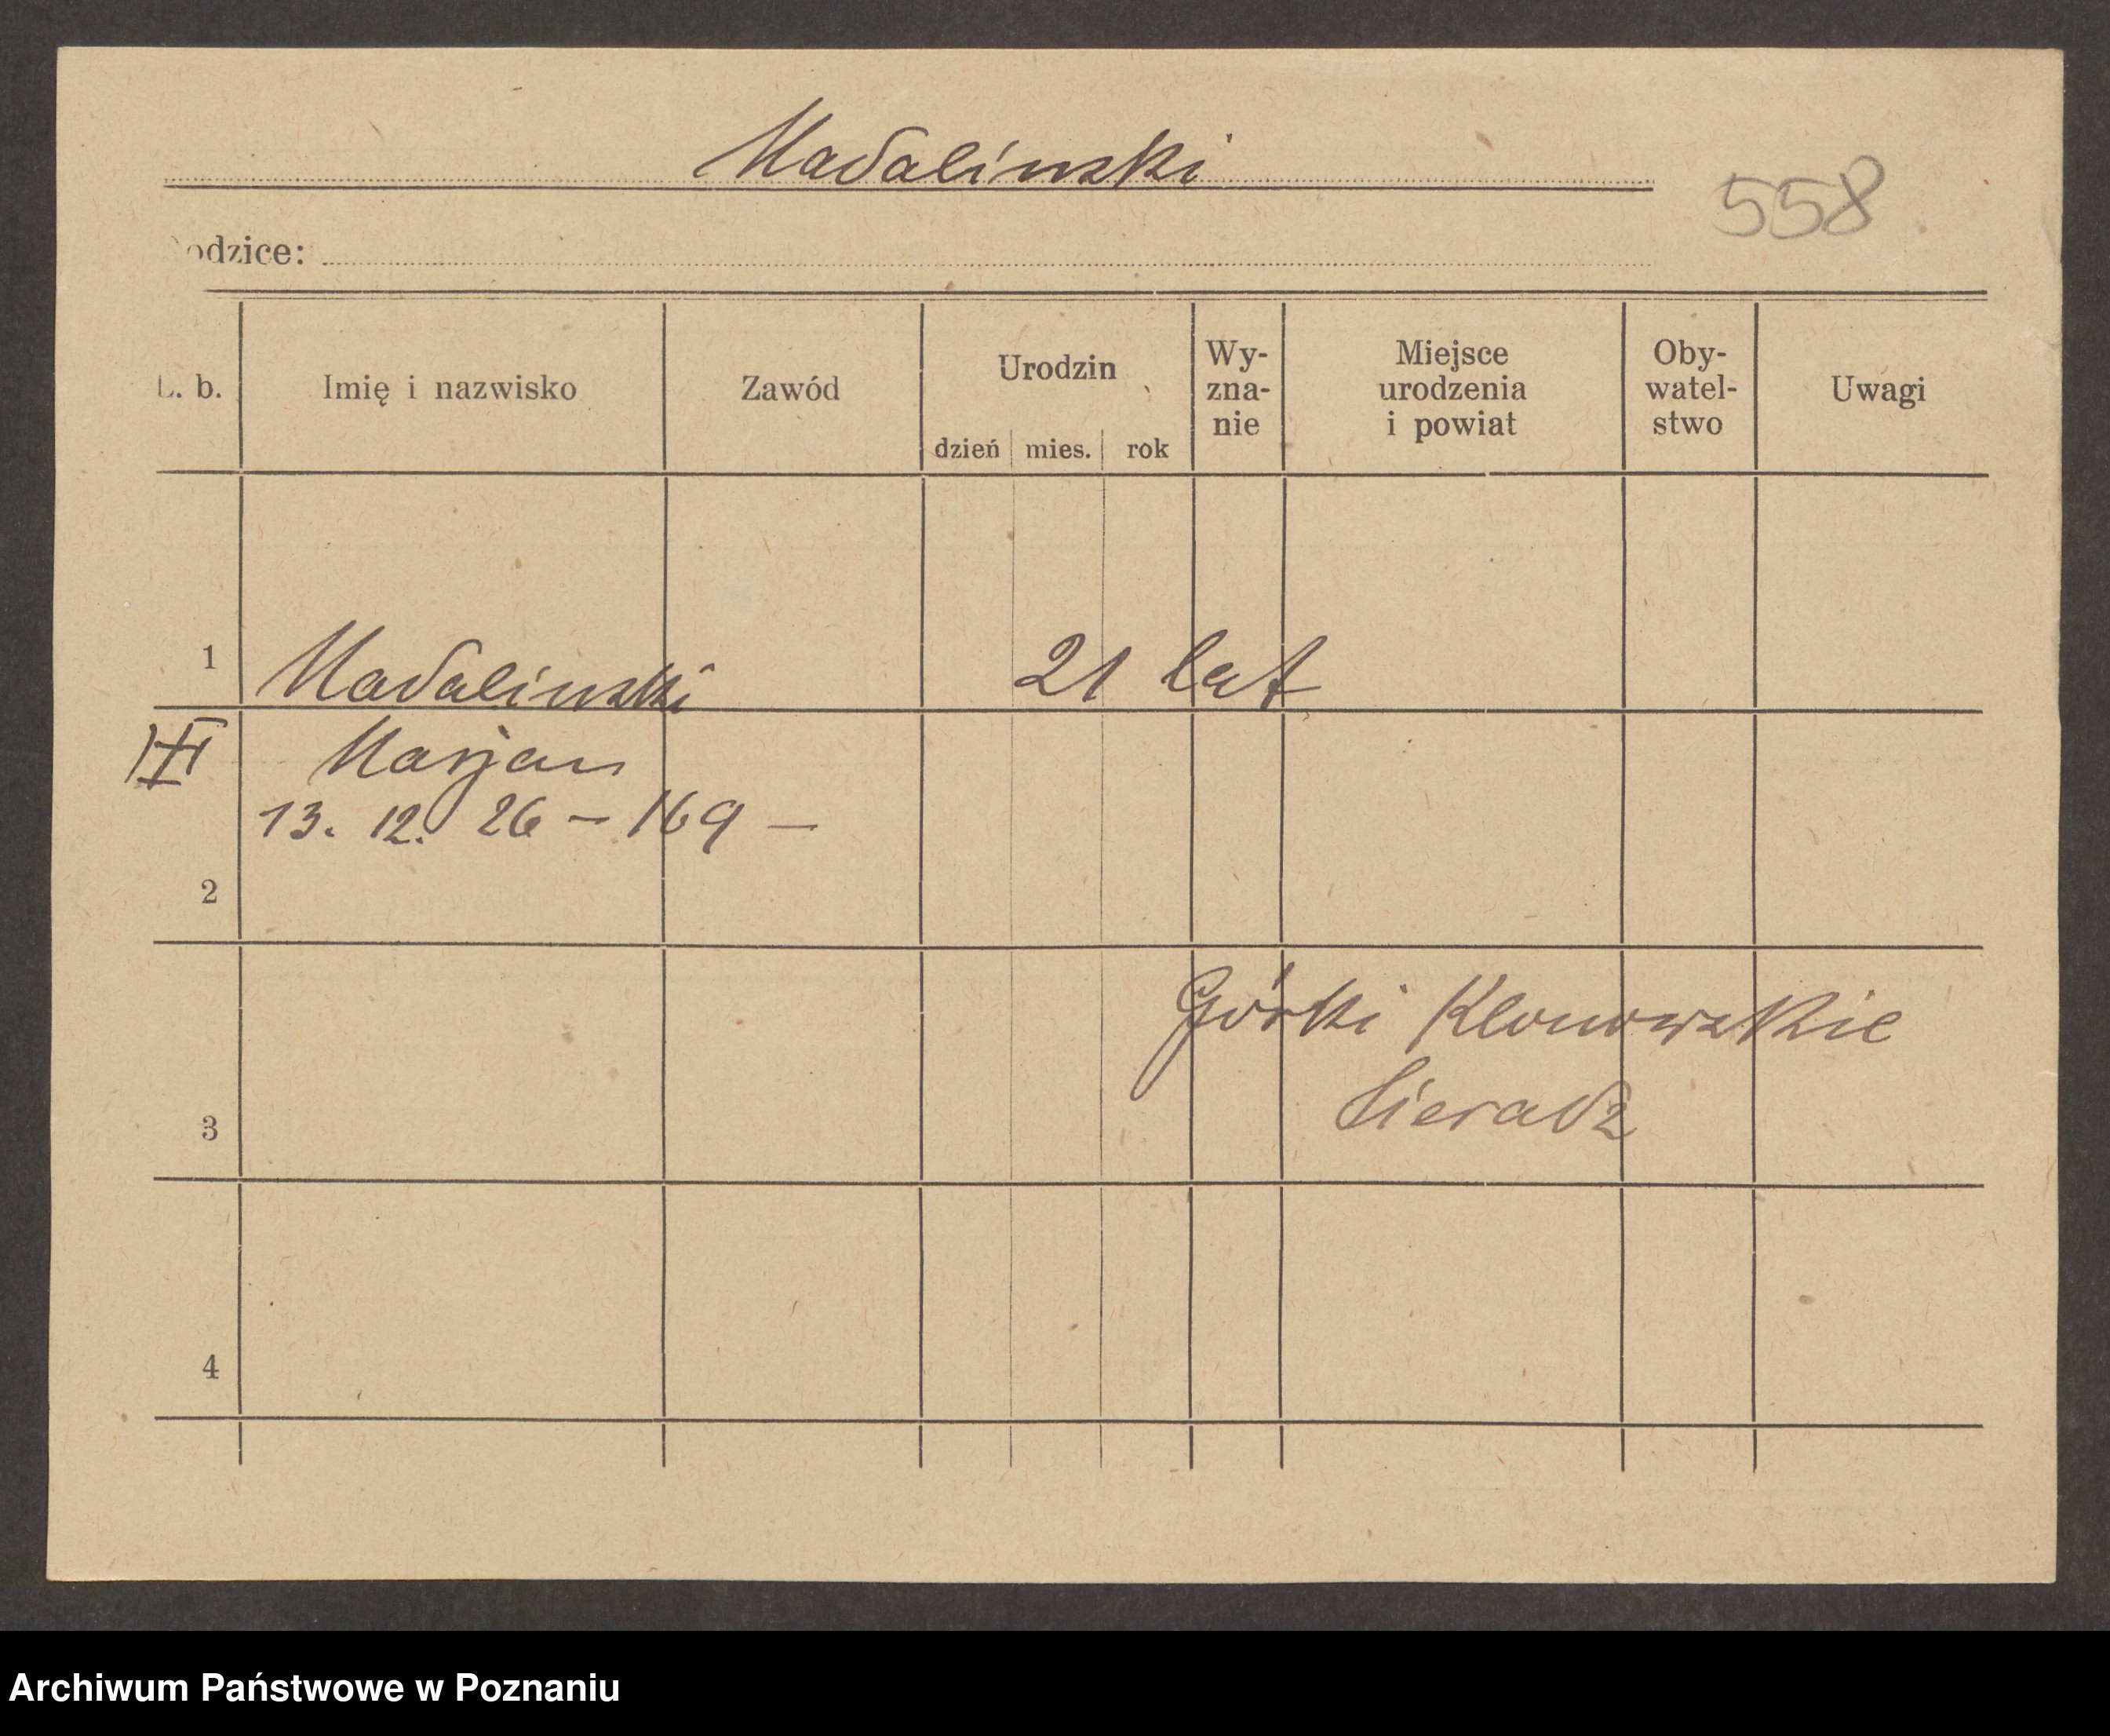 Madalinski
558
odzice:
L. b. Imię i nazwisko Zawód Urodzin dzień mies. rok Wy-zna-nie Miejsce urodzenia i powiat Oby-watel-stwo Uwagi
1 Madalinski 21 lat
III Marjan
13. 12. 26 – 169 –
2
Górki Klonowskie
Sieradz
3
4
Archiwum Państwowe w Poznaniu